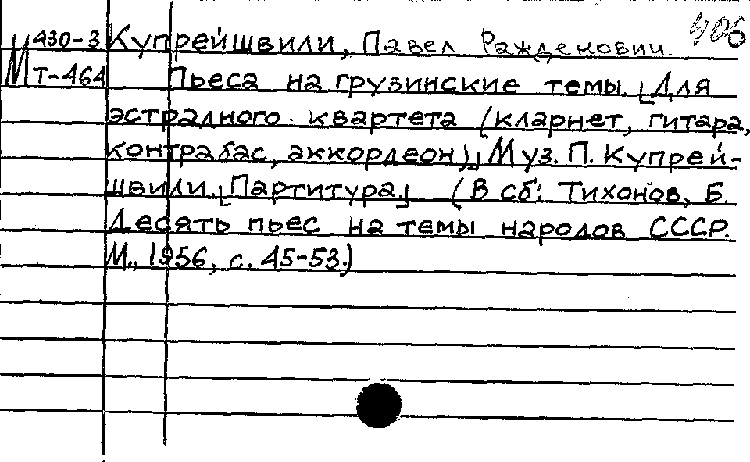 М 430-3 Купрейшвили, Павел Ражденович.
Т-464 Пьеса на грузинские темы. [Для
эстрадного квартета (кларнет, гитара,
контрабас, аккордеон)] Муз. П. Купрей-
швили. [Партитура] (В сб: Тихонов, Б.
Десять пьес на темы народов СССР.
М., 1956, с. 45-53.)